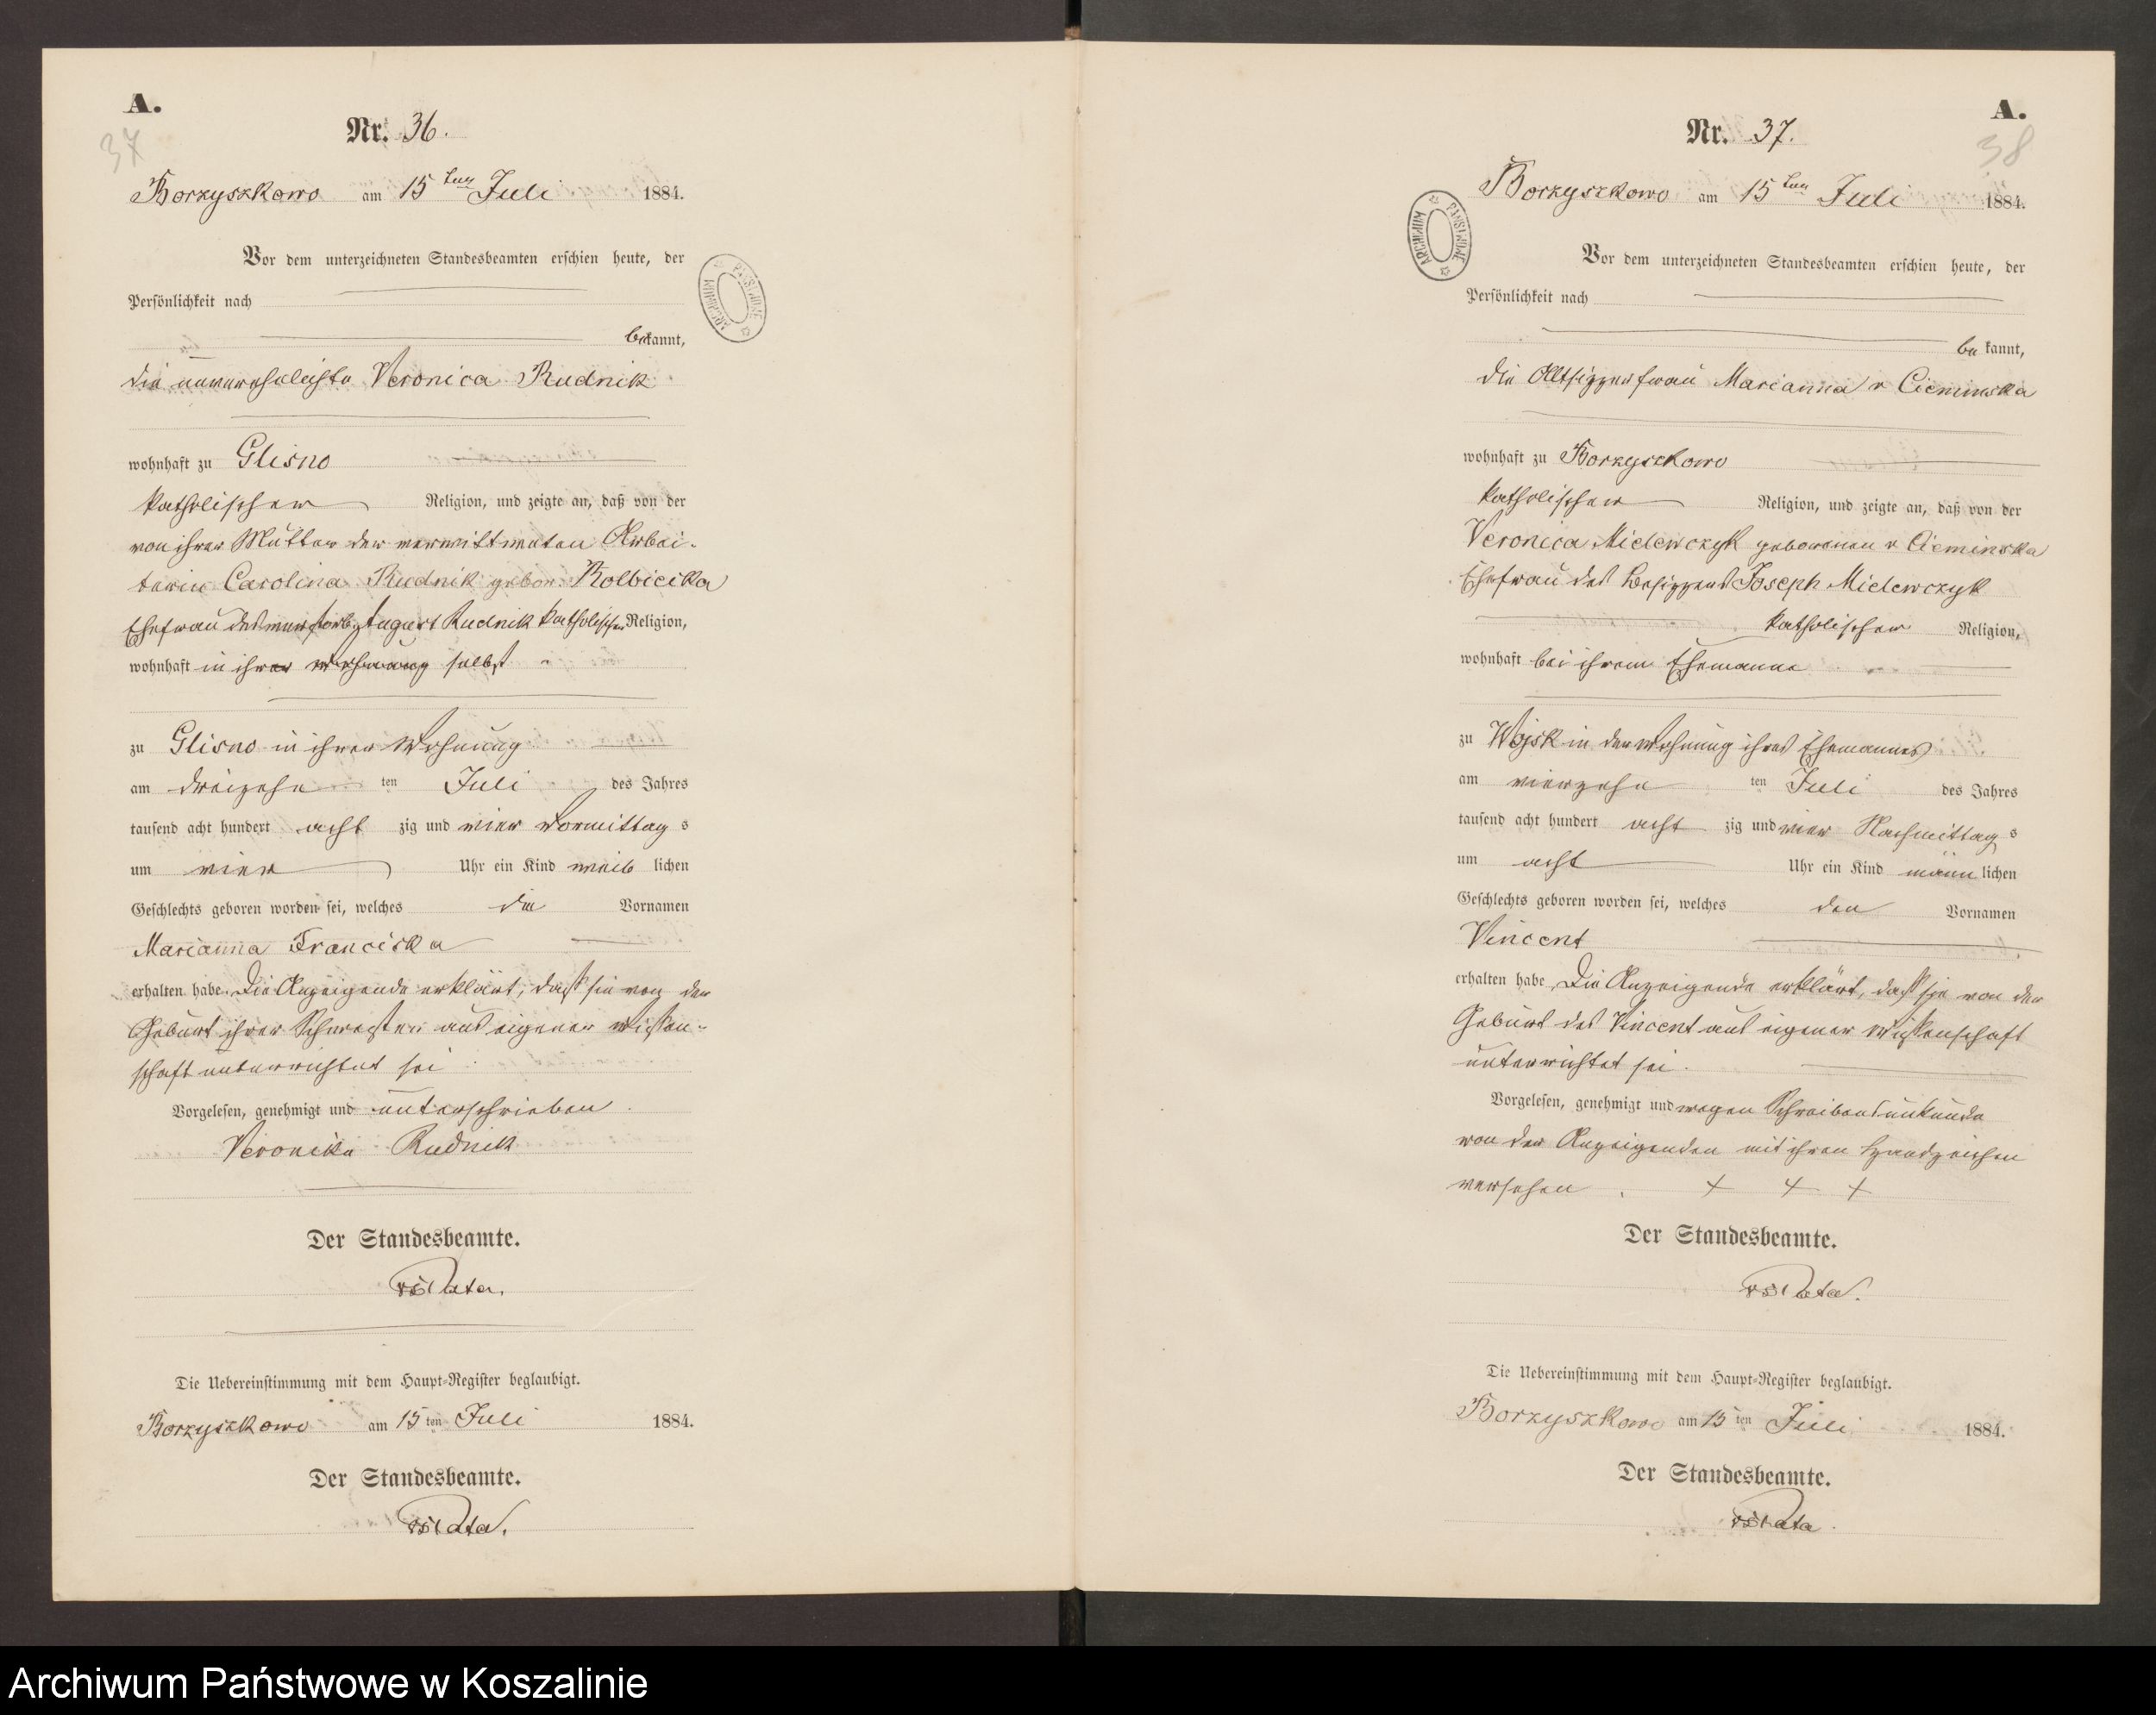 A.
37
Nr. 36.
Borzyszkowo am 15ten Juli 1884.
Vor dem unterzeichneten Standesbeamten erschien heute, der
Persönlichkeit nach
bekannt,
die unverehelichte Veronica Rudnik
wohnhaft zu Glisno
katholischer Religion, und zeigte an, daß von der
von ihrer Mutter der verwittweten Arbei-
terin Carolina Rudnik gebor. Kolbicika
Ehefrau des verstorb. August Rudnik katholischer Religion,
wohnhaft in ihrer Wohnung selbst
zu Glisno in ihrer Wohnung
am dreizehn ten Juli des Jahres
tausend acht hundert acht zig und vier Vormittag s
um vier Uhr ein Kind weib lichen
Geschlechts geboren worden sei, welches die Vornamen
Marianna Franciska
erhalten habe. Die Anzeigende erklärt, daß sie von der
Geburt ihrer Schwester aus eigener Wissen-
schaft unterrichtet sei
Vorgelesen, genehmigt und unterschrieben.
Veronika Rudnik
Der Standesbeamte.
Die Uebereinstimmung mit dem Haupt-Register beglaubigt.
Borzyszkowo am 15 ten Juli 1884.
Der Standesbeamte.
A.
38
Nr. 37.
Borzyszkowo am 15ten Juli 1884.
ARCHIWUM PAŃSTWOWE
Vor dem unterzeichneten Standesbeamten erschien heute, der
Persönlichkeit nach
be kannt,
die Altsitzerfrau Marianna v Cieminska
wohnhaft zu Borzyszkowo
katholischer Religion, und zeigte an, daß von der
Veronica Mielewczyk geborenen v Cieminska
Ehefrau des Besitzers Joseph Mielewczyk
katholischer Religion,
wohnhaft bei ihrem Ehemanne
zu Wojsk in der Wohnung ihres Ehemannes
am vierzehn ten Juli des Jahres
tausend acht hundert acht zig und vier Nachmittag s
um acht Uhr ein Kind männ lichen
Geschlechts geboren worden sei, welches den Vornamen
Vincent
erhalten habe. Die Anzeigende erklärt, daß sie von der
Geburt des Vincent aus eigener Wissenschaft
unterrichtet sei.
Vorgelesen, genehmigt und wegen Schreibensunkunde
von der Anzeigenden mit ihren Handzeichen
versehen. + + +
Der Standesbeamte.
Die Uebereinstimmung mit dem Haupt-Register beglaubigt.
Borzyszkowo am 15 ten Juli 1884.
Der Standesbeamte.
Archiwum Państwowe w Koszalinie